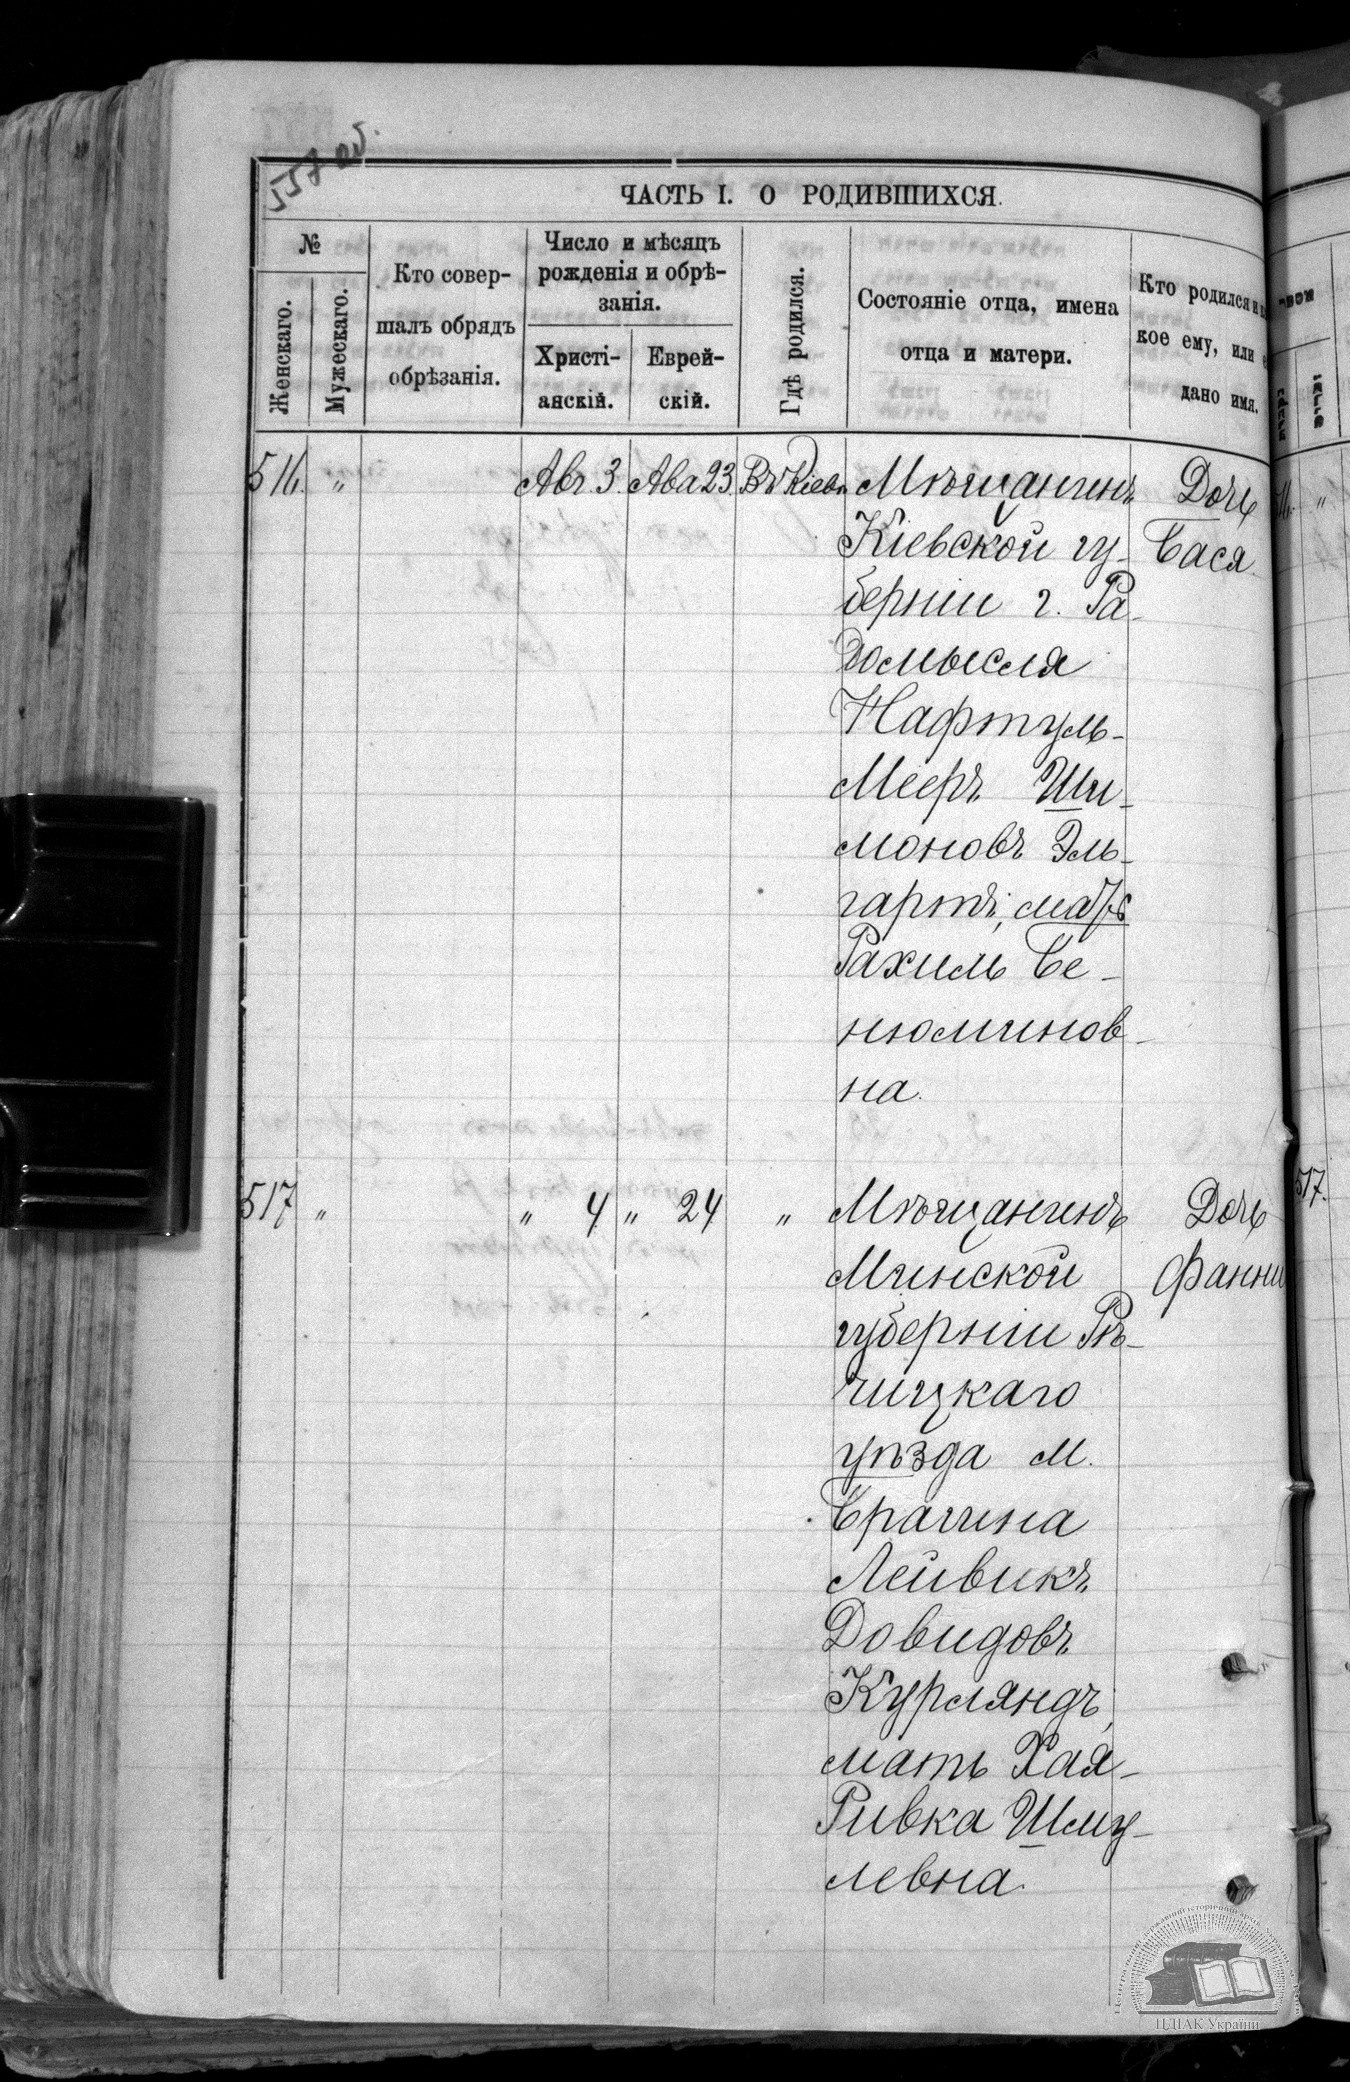 557 об.
ЧАСТЬ I. О РОДИВШИХСЯ.
№
Женскаго.
Мужескаго.
Кто совер-
шалъ обрядъ
обрѣзанія.
Число и мѣсяцъ
рожденія и обрѣ-
занія.
Христі-
анскій.
Еврей-
скій.
Гдѣ родился.
Состояніе отца, имена
отца и матери.
Кто родился и
кое ему, или
дано имя.
516. " Авг. 3. Ава 23. Въ Кіевѣ Мѣщанинъ Дочь
Кіевской гу- Бася.
берніи г. Ра-
домысля
Нафтуль-
Мееръ Ши-
моновъ Эль-
гартъ, мать
Рахиль Бе-
нюминов-
на.
517 " " 4 " 24 " Мѣщанинъ Дочь
Минской Фанни
губерніи Рѣ-
чицкаго
уѣзда м.
Брагина
Лейвикъ
Довидовъ
Курляндъ,
мать Хая-
Ривка Шму-
левна.
517.
ЦДІАК України